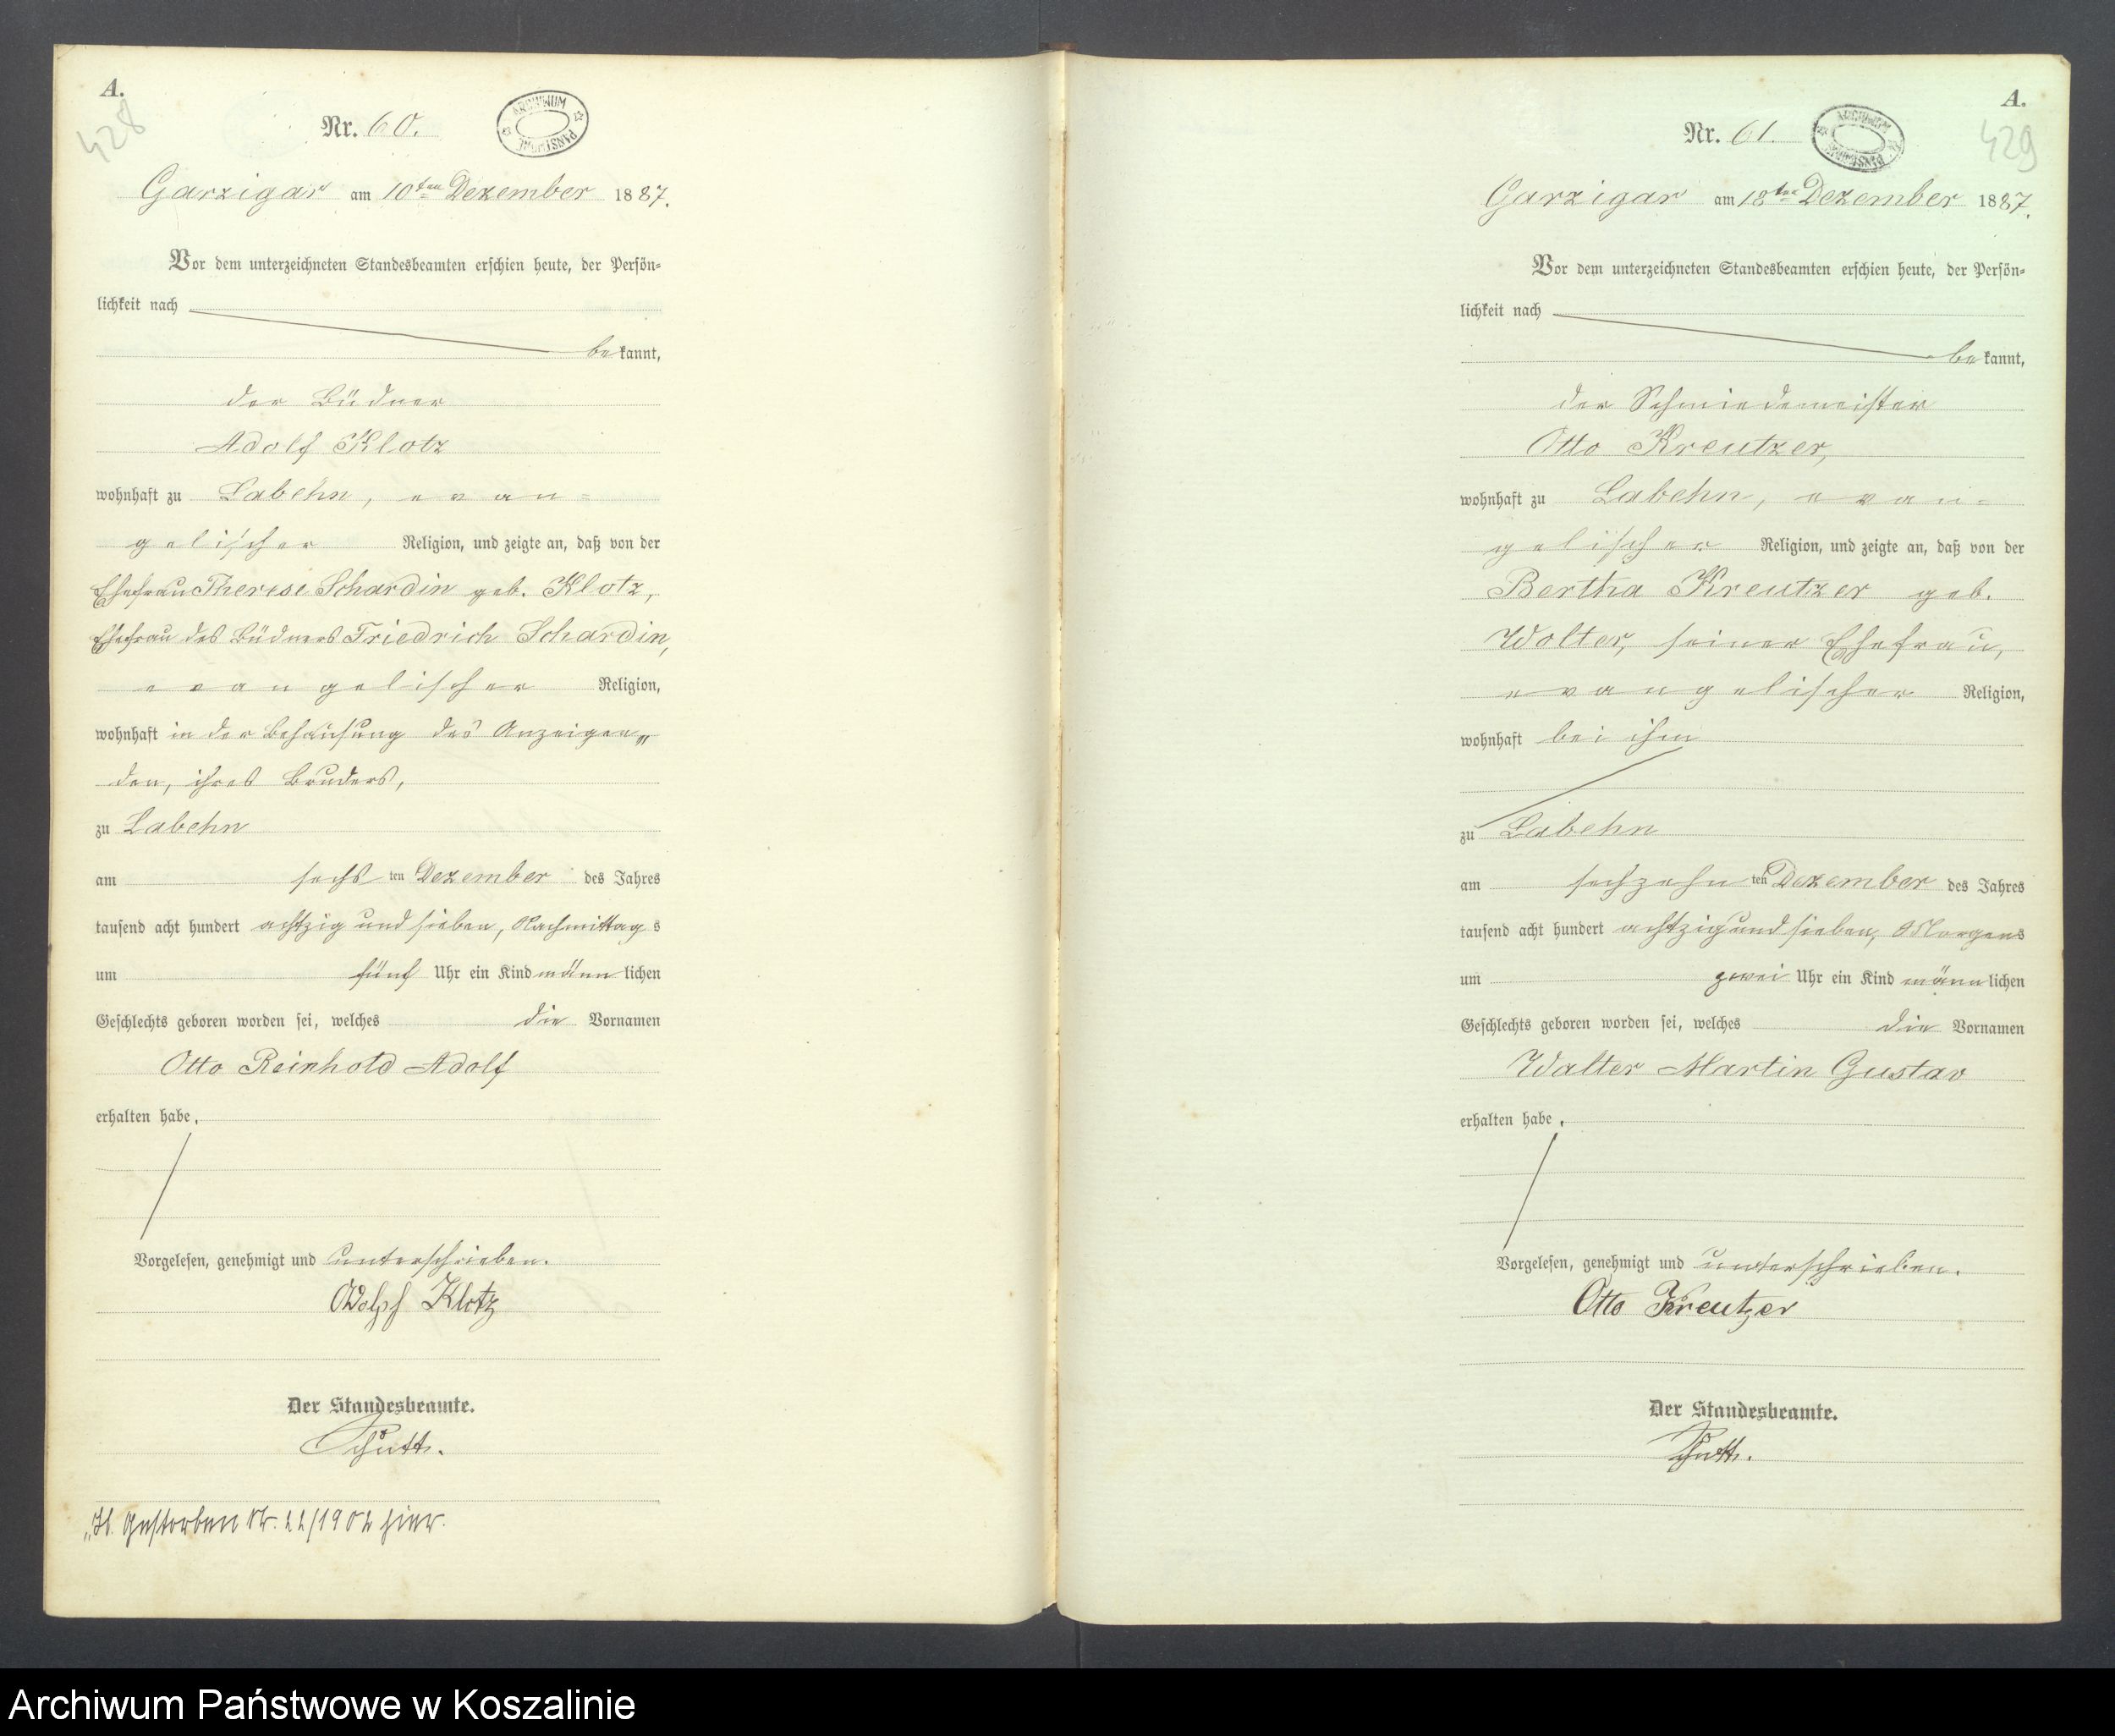 A.
428
Nr. 60.
ARCHIWUM PAŃSTWOWE
Garzigar am 10ten Dezember 1887.
Vor dem unterzeichneten Standesbeamten erschien heute, der Persön-
lichkeit nach
bekannt,
der Büdner
Adolf Klotz
wohnhaft zu Labehn, evan-
gelischer Religion, und zeigte an, daß von der
Ehefrau Therese Schardin geb. Klotz,
Ehefrau des Büdners Friedrich Schardin,
evangelischer Religion,
wohnhaft in der Behausung des Anzeigen-
den, ihres Bruders,
zu Labehn
am sechsten Dezember des Jahres
tausend acht hundert achtzig und sieben, Nachmittags
um fünf Uhr ein Kind männlichen
Geschlechts geboren worden sei, welches die Vornamen
Otto Reinhold Adolf
erhalten habe.
Vorgelesen, genehmigt und unterschrieben.
Adolf Klotz
Der Standesbeamte.
Schutt.
Gestorben Nr. 22/1902 hier.
A.
429
Nr. 61.
ARCHIWUM PAŃSTWOWE
Garzigar am 18ten Dezember 1887.
Vor dem unterzeichneten Standesbeamten erschien heute, der Persön-
lichkeit nach
bekannt,
der Schmiedemeister
Otto Kreutzer,
wohnhaft zu Labehn, evan-
gelischer Religion, und zeigte an, daß von der
Bertha Kreutzer geb.
Wolter, seiner Ehefrau,
evangelischer Religion,
wohnhaft bei ihm
zu Labehn
am sechzehnten Dezember des Jahres
tausend acht hundert achtzig und sieben, Morgens
um zwei Uhr ein Kind männlichen
Geschlechts geboren worden sei, welches die Vornamen
Walter Martin Gustav
erhalten habe.
Vorgelesen, genehmigt und unterschrieben.
Otto Kreutzer
Der Standesbeamte.
Schutt.
Archiwum Państwowe w Koszalinie